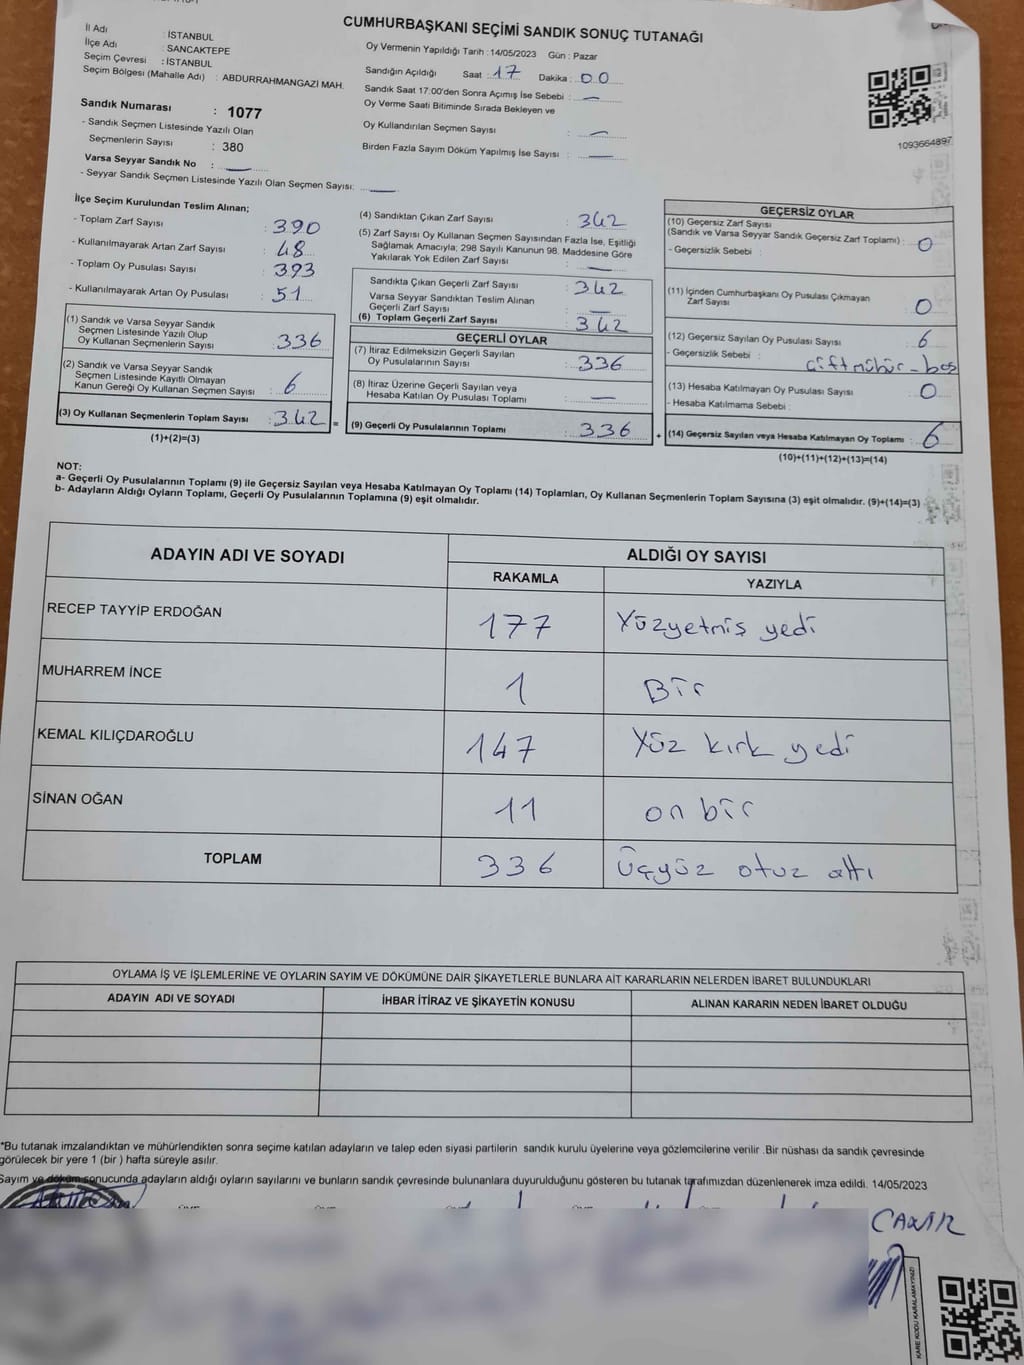 CUMHURBAŞKANI SEÇİMİ SANDIK SONUÇ TUTANAĞI
İl Adı : İSTANBUL
İlçe Adı : SANCAKTEPE
Seçim Çevresi : İSTANBUL
Seçim Bölgesi (Mahalle Adı) : ABDURRAHMANGAZİ MAH.
Sandık Numarası : 1077
- Sandık Seçmen Listesinde Yazılı Olan
Seçmenlerin Sayısı : 380
Varsa Seyyar Sandık No : —
- Seyyar Sandık Seçmen Listesinde Yazılı Olan Seçmen Sayısı: —
Oy Vermenin Yapıldığı Tarih : 14/05/2023 Gün : Pazar
Sandığın Açıldığı Saat : 17 Dakika : 00
Sandık Saat 17:00'den Sonra Açımış İse Sebebi : —
Oy Verme Saati Bitiminde Sırada Bekleyen ve
Oy Kullandırılan Seçmen Sayısı : —
Birden Fazla Sayım Döküm Yapılmış İse Sayısı : —
1093664897
İlçe Seçim Kurulundan Teslim Alınan;
- Toplam Zarf Sayısı : 390
- Kullanılmayarak Artan Zarf Sayısı : 48
- Toplam Oy Pusulası Sayısı : 393
- Kullanılmayarak Artan Oy Pusulası : 51
(1) Sandık ve Varsa Seyyar Sandık
Seçmen Listesinde Yazılı Olup
Oy Kullanan Seçmenlerin Sayısı : 336
(2) Sandık ve Varsa Seyyar Sandık
Seçmen Listesinde Kayıtlı Olmayan
Kanun Gereği Oy Kullanan Seçmen Sayısı : 6
(3) Oy Kullanan Seçmenlerin Toplam Sayısı : 342 =
(1)+(2)=(3)
(4) Sandıktan Çıkan Zarf Sayısı : 342
(5) Zarf Sayısı Oy Kullanan Seçmen Sayısından Fazla İse, Eşitliği
Sağlamak Amacıyla; 298 Sayılı Kanunun 98. Maddesine Göre
Yakılarak Yok Edilen Zarf Sayısı : —
Sandıkta Çıkan Geçerli Zarf Sayısı : 342
Varsa Seyyar Sandıktan Teslim Alınan
Geçerli Zarf Sayısı : —
(6) Toplam Geçerli Zarf Sayısı : 342
GEÇERLİ OYLAR
(7) İtiraz Edilmeksizin Geçerli Sayılan
Oy Pusulalarının Sayısı : 336
(8) İtiraz Üzerine Geçerli Sayılan veya
Hesaba Katılan Oy Pusulası Toplamı : —
(9) Geçerli Oy Pusulalarının Toplamı : 336 +
GEÇERSİZ OYLAR
(10) Geçersiz Zarf Sayısı
(Sandık ve Varsa Seyyar Sandık Geçersiz Zarf Toplamı) : 0
- Geçersizlik Sebebi :
(11) İçinden Cumhurbaşkanı Oy Pusulası Çıkmayan
Zarf Sayısı : 0
(12) Geçersiz Sayılan Oy Pusulası Sayısı : 6
- Geçersizlik Sebebi : çiftmühür - boş
(13) Hesaba Katılmayan Oy Pusulası Sayısı : 0
- Hesaba Katılmama Sebebi :
(14) Geçersiz Sayılan veya Hesaba Katılmayan Oy Toplamı : 6
(10)+(11)+(12)+(13)=(14)
NOT:
a- Geçerli Oy Pusulalarının Toplamı (9) ile Geçersiz Sayılan veya Hesaba Katılmayan Oy Toplamı (14) Toplamları, Oy Kullanan Seçmenlerin Toplam Sayısına (3) eşit olmalıdır. (9)+(14)=(3)
b- Adayların Aldığı Oyların Toplamı, Geçerli Oy Pusulalarının Toplamına (9) eşit olmalıdır.
ADAYIN ADI VE SOYADI ALDIĞI OY SAYISI
RAKAMLA YAZIYLA
RECEP TAYYİP ERDOĞAN 177 Yüzyetmiş yedi
MUHARREM İNCE 1 Bir
KEMAL KILIÇDAROĞLU 147 Yüz kırk yedi
SİNAN OĞAN 11 on bir
TOPLAM 336 Üçyüz otuz altı
OYLAMA İŞ VE İŞLEMLERİNE VE OYLARIN SAYIM VE DÖKÜMÜNE DAİR ŞİKAYETLERLE BUNLARA AİT KARARLARIN NELERDEN İBARET BULUNDUKLARI
ADAYIN ADI VE SOYADI İHBAR İTİRAZ VE ŞİKAYETİN KONUSU ALINAN KARARIN NEDEN İBARET OLDUĞU
*Bu tutanak imzalandıktan ve mühürlendikten sonra seçime katılan adayların ve talep eden siyasi partilerin sandık kurulu üyelerine veya gözlemcilerine verilir .Bir nüshası da sandık çevresinde
görülecek bir yere 1 (bir ) hafta süreyle asılır.
Sayım ve döküm sonucunda adayların aldığı oyların sayılarını ve bunların sandık çevresinde bulunanlara duyurulduğunu gösteren bu tutanak tarafımızdan düzenlenerek imza edildi. 14/05/2023
KARE KODU KARALAMAYINIZ!